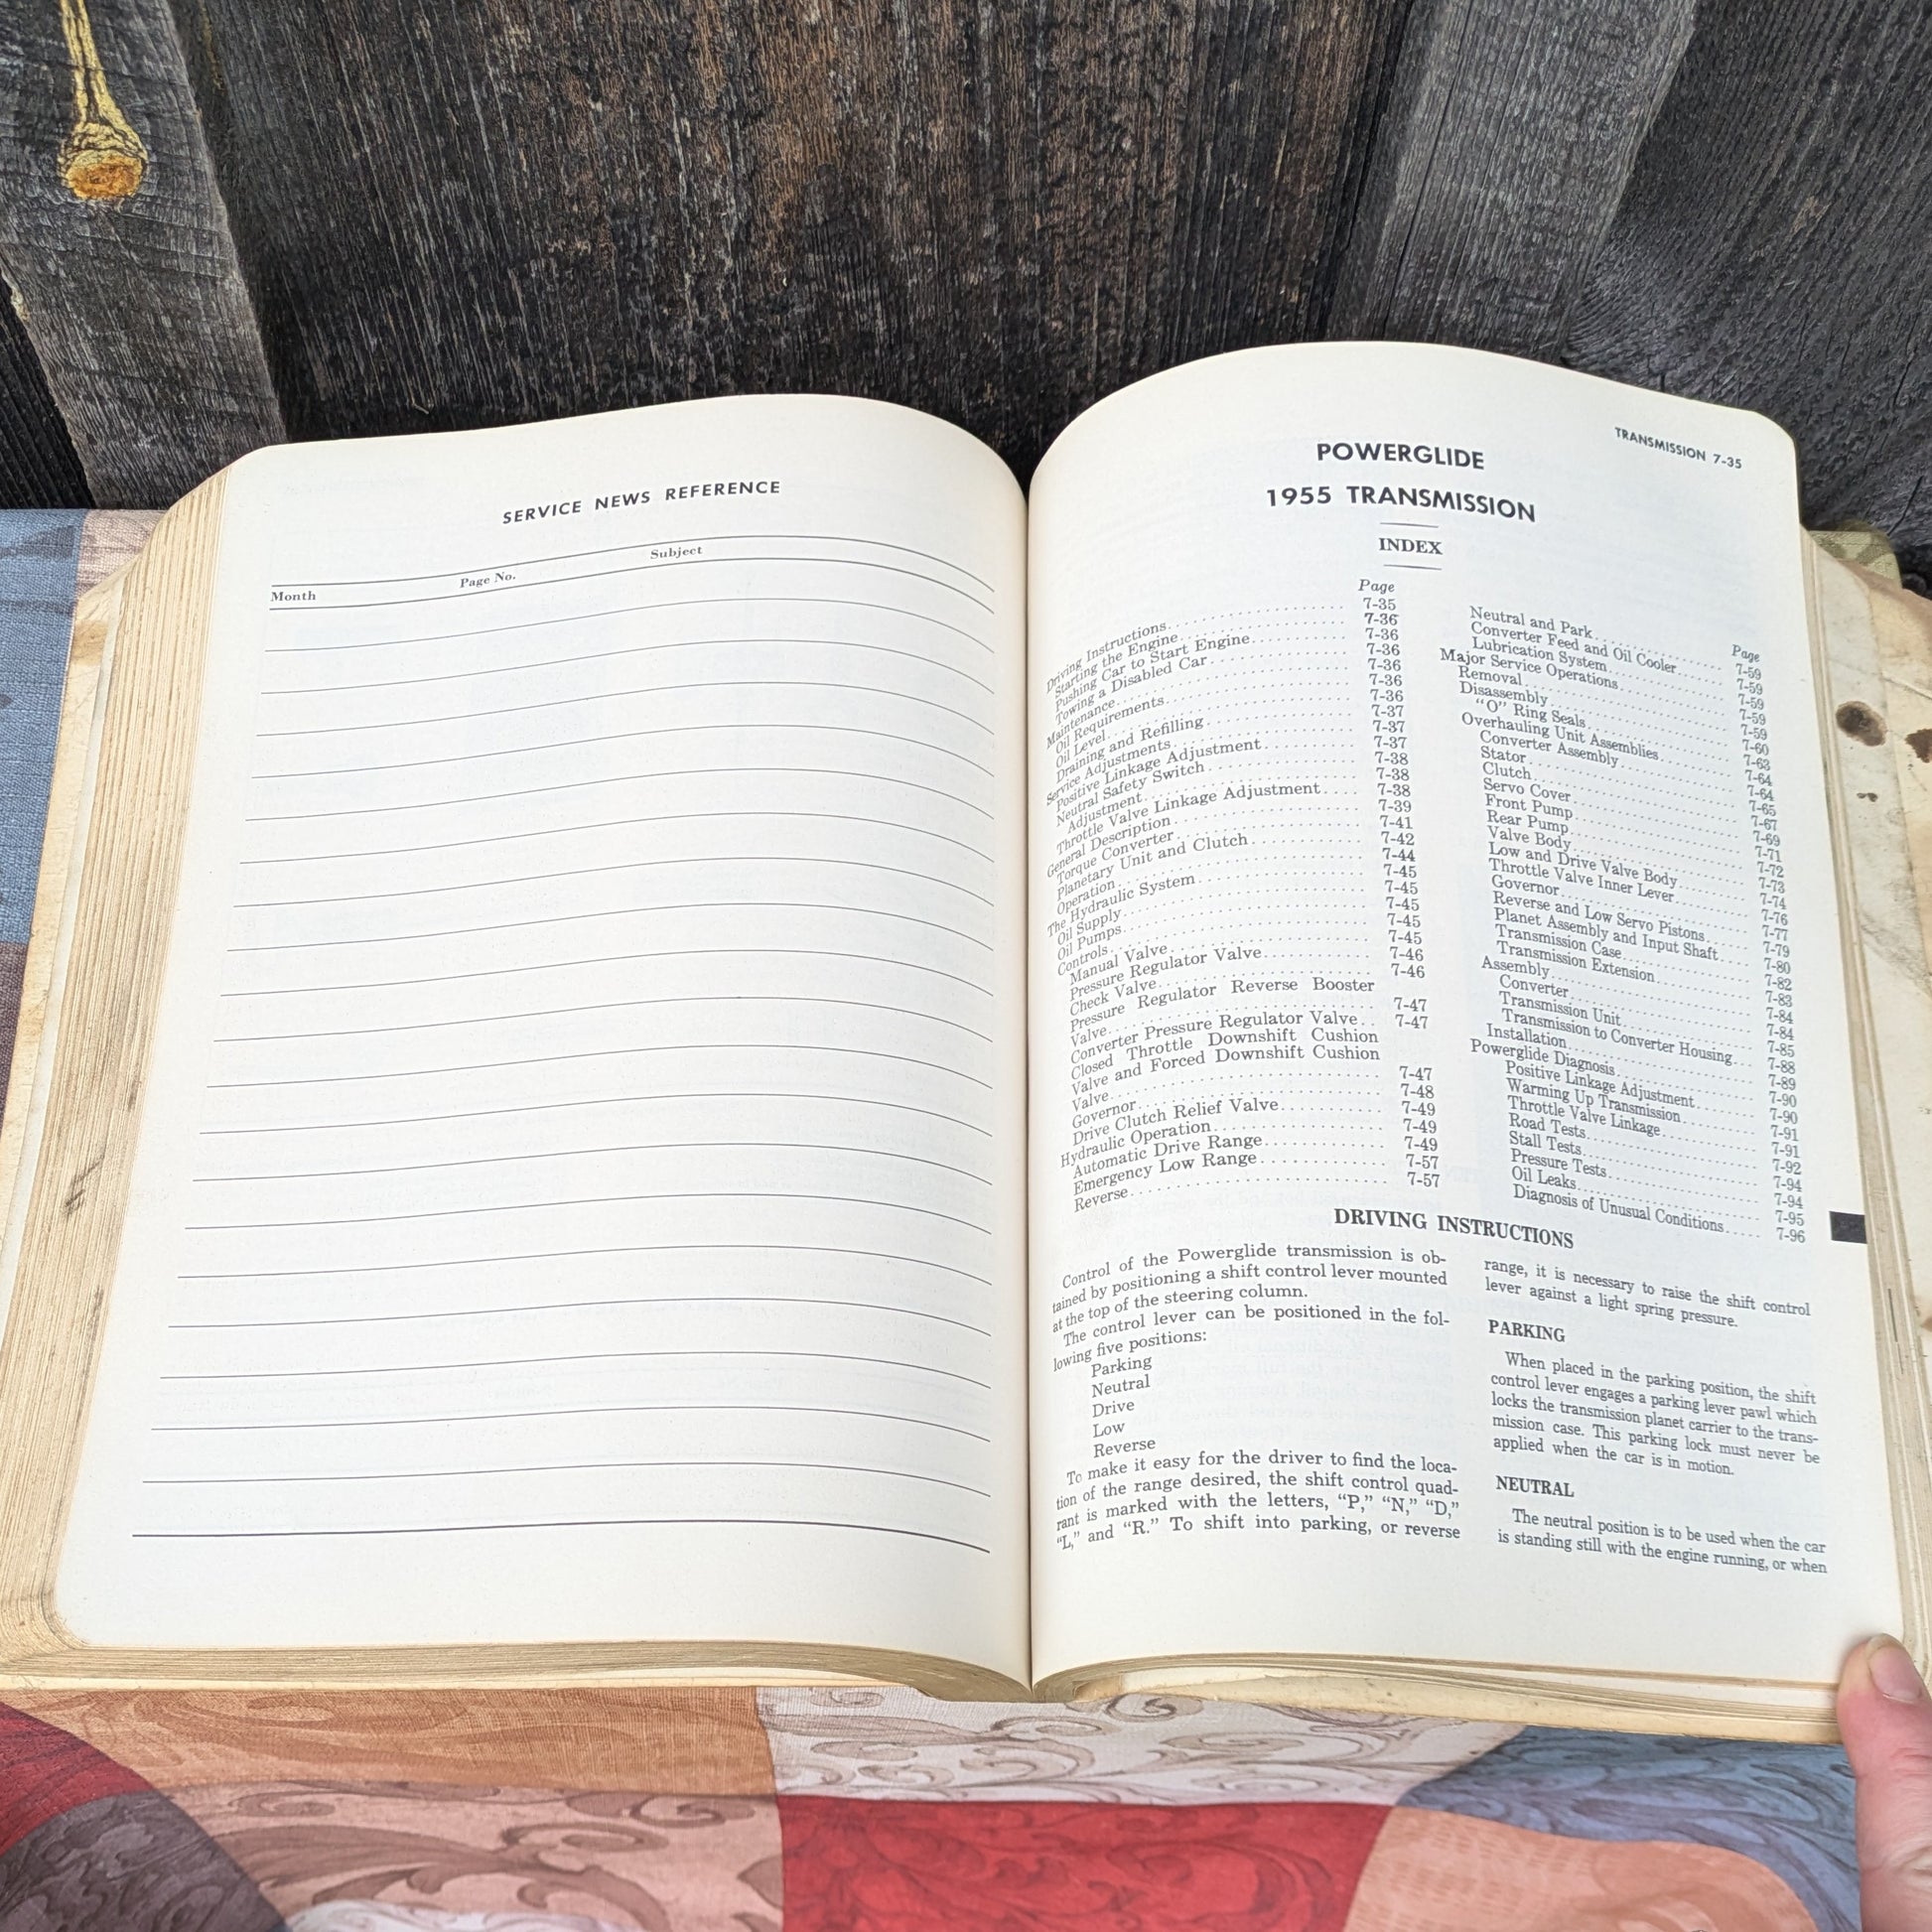 SERVICE NEWS REFERENCE
Month Page No. Subject
TRANSMISSION 7-35
POWERGLIDE
1955 TRANSMISSION
INDEX
Page
Driving Instructions 7-35
Starting the Engine 7-36
Pushing Car to Start Engine 7-36
Towing a Disabled Car 7-36
Maintenance 7-36
Oil Requirements 7-36
Oil Level 7-36
Draining and Refilling 7-37
Service Adjustments 7-37
Positive Linkage Adjustment 7-37
Neutral Safety Switch 7-38
Adjustment 7-38
Throttle Valve Linkage Adjustment 7-38
General Description 7-39
Torque Converter 7-41
Planetary Unit and Clutch 7-42
Operation 7-44
The Hydraulic System 7-45
Oil Supply 7-45
Oil Pumps 7-45
Controls 7-45
Manual Valve 7-45
Pressure Regulator Valve 7-46
Check Valve 7-46
Pressure Regulator Reverse Booster
Valve 7-47
Converter Pressure Regulator Valve 7-47
Closed Throttle Downshift Cushion
Valve and Forced Downshift Cushion
Valve 7-47
Governor 7-48
Drive Clutch Relief Valve 7-49
Hydraulic Operation 7-49
Automatic Drive Range 7-49
Emergency Low Range 7-57
Reverse 7-57
Page
Neutral and Park 7-59
Converter Feed and Oil Cooler 7-59
Lubrication System 7-59
Major Service Operations 7-59
Removal 7-59
Disassembly 7-60
"O" Ring Seals 7-63
Overhauling Unit Assemblies 7-64
Converter Assembly 7-64
Stator 7-65
Clutch 7-67
Servo Cover 7-69
Front Pump 7-71
Rear Pump 7-72
Valve Body 7-73
Low and Drive Valve Body 7-74
Throttle Valve Inner Lever 7-76
Governor 7-77
Reverse and Low Servo Pistons 7-79
Planet Assembly and Input Shaft 7-80
Transmission Case 7-82
Transmission Extension 7-83
Assembly 7-84
Converter 7-84
Transmission Unit 7-85
Transmission to Converter Housing 7-88
Installation 7-89
Powerglide Diagnosis 7-90
Positive Linkage Adjustment 7-90
Warming Up Transmission 7-91
Throttle Valve Linkage 7-91
Road Tests 7-92
Stall Tests 7-94
Pressure Tests 7-94
Oil Leaks 7-95
Diagnosis of Unusual Conditions 7-96
DRIVING INSTRUCTIONS
Control of the Powerglide transmission is ob-
tained by positioning a shift control lever mounted
at the top of the steering column.
The control lever can be positioned in the fol-
lowing five positions:
Parking
Neutral
Drive
Low
Reverse
To make it easy for the driver to find the loca-
tion of the range desired, the shift control quad-
rant is marked with the letters, "P," "N," "D,"
"L," and "R." To shift into parking, or reverse
range, it is necessary to raise the shift control
lever against a light spring pressure.
PARKING
When placed in the parking position, the shift
control lever engages a parking lever pawl which
locks the transmission planet carrier to the trans-
mission case. This parking lock must never be
applied when the car is in motion.
NEUTRAL
The neutral position is to be used when the car
is standing still with the engine running, or when